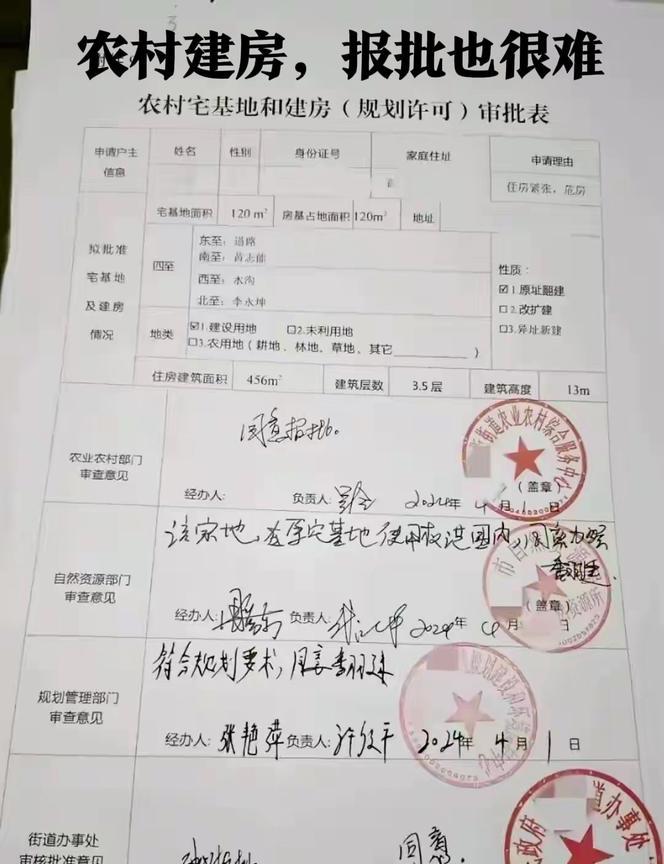 农村建房，报批也很难
农村宅基地和建房（规划许可）审批表
申请户主信息 姓名 性别 身份证号 家庭住址 申请理由
住房紧张，危房
宅基地面积 120 m² 房基占地面积 120m² 地址
拟批准宅基地及建房情况
四至
东至：道路
南至：
西至：水沟
北至：李永坤
性质：
☑1.原址翻建
□2.改扩建
□3.异址新建
地类
☑1.建设用地 □2.未利用地
□3.农用地（耕地、林地、草地、其它 ）
住房建筑面积 456m² 建筑层数 3.5 层 建筑高度 13m
农业农村部门审查意见
同意报批。
街道农业农村综合服务中心
（盖章）
经办人： 负责人： 2024年 4月 1日
自然资源部门审查意见
该宗地，在原宅基地使用权范围内，同意
（盖章）
经办人： 负责人： 2024年 4月 日
规划管理部门审查意见
符合规划要求，同意
经办人：张艳萍 负责人： 2024年 4月 1日
街道办事处审核批准意见
同意
道办事处